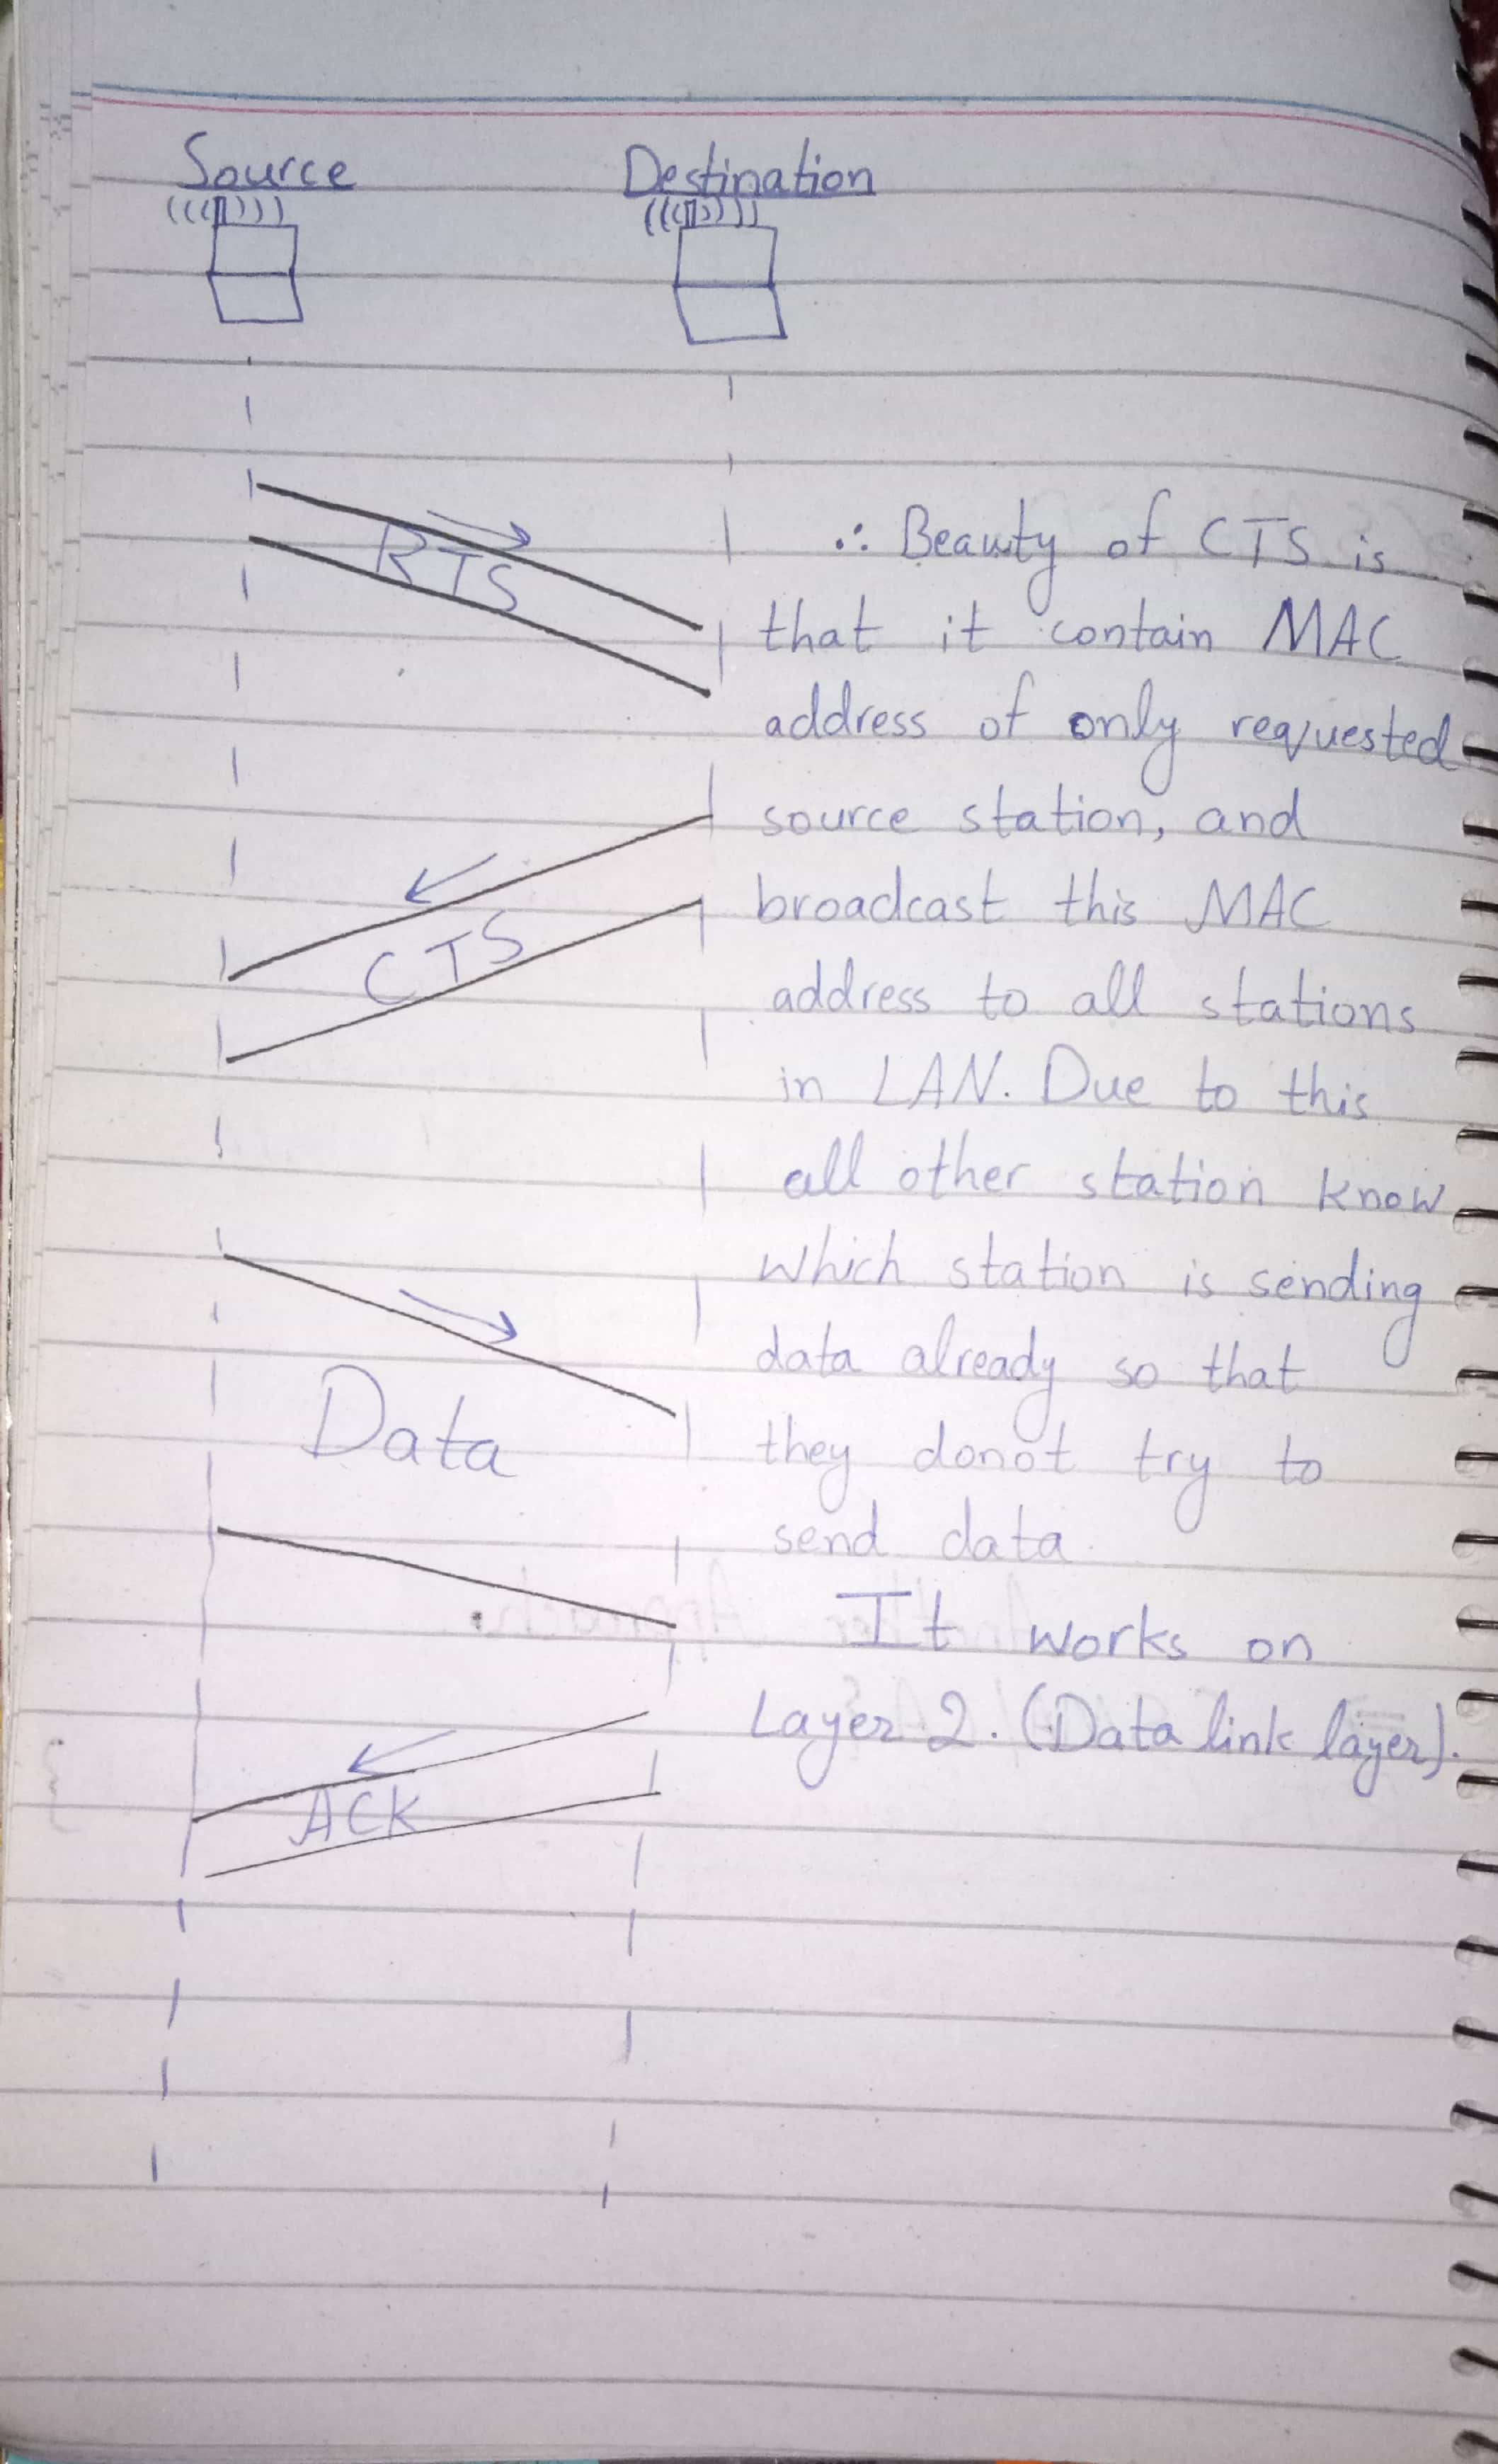 Source
Destination
RTS
∴ Beauty of CTS is
that it contain MAC
address of only requested
source station, and
broadcast this MAC
CTS
address to all stations
in LAN. Due to this
all other station know
which station is sending
data already so that
Data
they donot try to
send data.
It works on
Layer 2. (Data link layer).
ACK